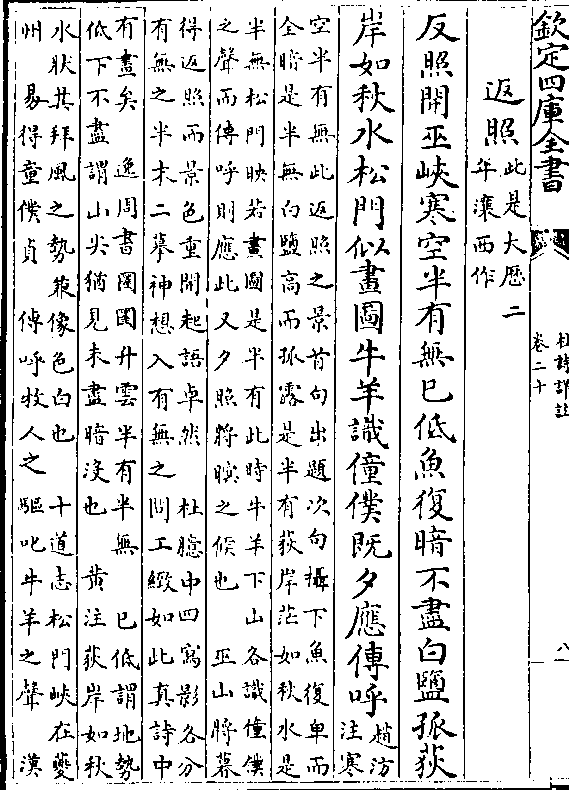 欽定四庫全書
杜詩詳註
卷二十
八
返照
此是大厯二
年瀼西作
反照開巫峽寒空半有無已低魚復暗不盡白鹽孤荻
岸如秋水松門似畫圖牛羊識僮僕既夕應傳呼
趙汸
注寒
空半有無此返照之景首句出題次句攝下魚復卑而
全暗是半無白鹽高而孤露是半有荻岸茫如秋水是
半無松門映若畫圖是半有此時牛羊下山各識僮僕
之聲而傳呼則應此又夕照將暝之候也 巫山將暮
得返照而景色重開起語卓然 杜臆中四寫影各分
有無之半末二摹神想入有無之間工緻如此真詩中
有畫矣 逸周書圛圛升雲半有半無 已低謂地勢
低下不盡謂山尖猶見未盡暗沒也 黄注荻岸如秋
水狀其拜風之勢兼像色白也 十道志松門峽在夔
州 易得童僕貞 傳呼牧人之驅叱牛羊之聲 漢